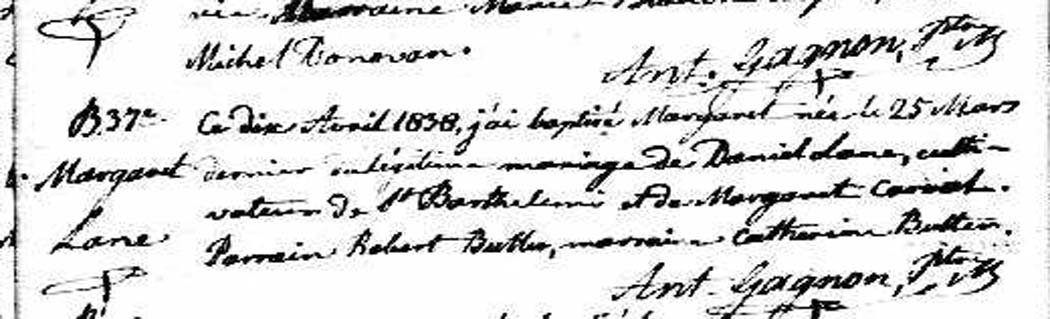 née Marraine
Michel Donovan.
Ant. Gagnon, Ptre
B37e Ce dix Avril 1838, j'ai baptisé Margaret née le 25 Mars
Margaret dernier en légitime mariage de Daniel Lane, culti-
vateur de St Barthelemi et de Margaret
Lane Parrain Robert Butler, marraine Catherine Butler.
Ant. Gagnon, Ptre